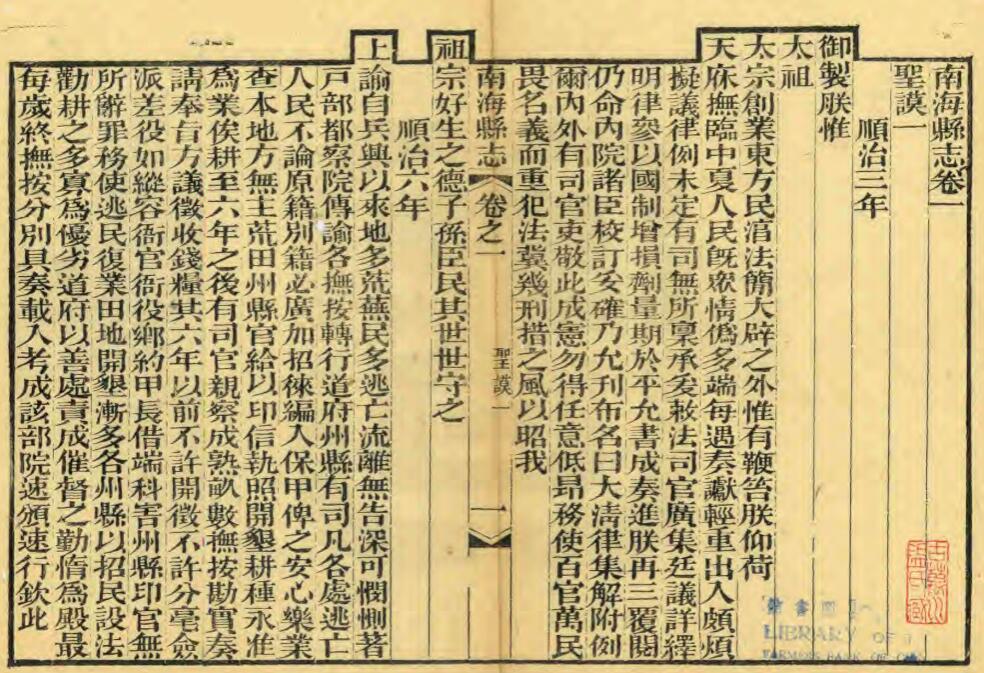 南海縣志卷一
聖謨一
順治三年
御製朕惟
太祖
太宗創業東方民淳法簡大辟之外惟有鞭笞朕仰荷
天庥撫臨中夏人民旣衆情僞多端每遇奏讞輕重出入頗煩
擬議律例未定有司無所稟承爰敕法司官廣集廷議詳繹
明律參以國制增損劑量期於平允書成奏進朕再三覆閱
仍命內院諸臣校訂妥確乃允刊布名曰大淸律集解附例
爾內外有司官吏敬此成憲勿得任意低昂務使百官萬民
畏名義而重犯法冀幾刑措之風以昭我
南海縣志
卷之一
聖謨一
一
祖宗好生之德子孫臣民其世世守之
順治六年
上諭自兵興以來地多荒蕪民多逃亡流離無告深可憫惻著
戶部都察院傳諭各撫按轉行道府州縣有司凡各處逃亡
人民不論原籍別籍必廣加招徠編入保甲俾之安心樂業
查本地方無主荒田州縣官給以印信執照開墾耕種永准
爲業俟耕至六年之後有司官親察成熟畝數撫按勘實奏
請奉旨方議徵收錢糧其六年以前不許開徵不許分毫僉
派差役如縱容衙官衙役鄉約甲長借端科害州縣印官無
所辭罪務使逃民復業田地開墾漸多各州縣以招民設法
勸耕之多寡爲優劣道府以善處責成催督之勤惰爲殿最
每歲終撫按分別具奏載入考成該部院速頒速行欽此
館書圖
LIBRARY OF
FARMERS BANK OF